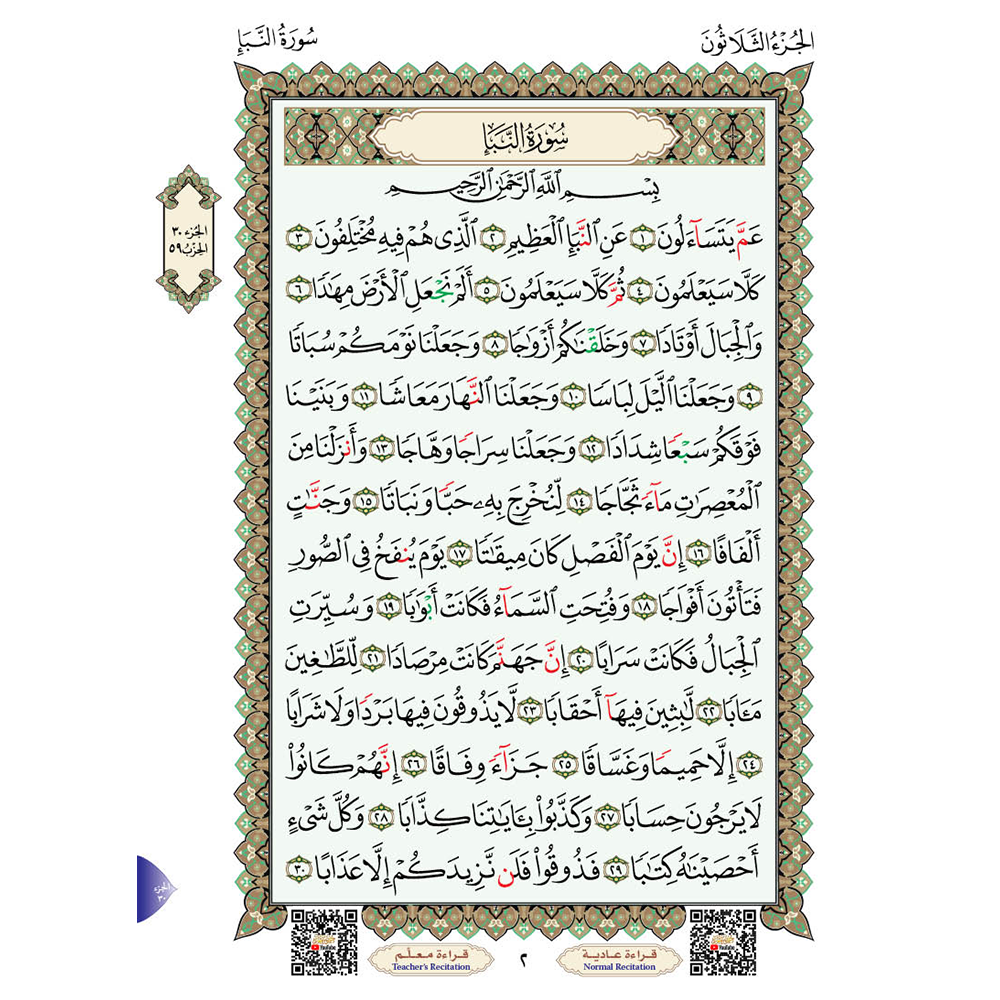 الجُزْءُ الثَّلَاثُونَ
سُورَةُ النَّبَإِ
سُورَةُ النَّبَإِ
بِسْمِ ٱللَّهِ ٱلرَّحْمَٰنِ ٱلرَّحِيمِ
عَمَّ يَتَسَآءَلُونَ ١ عَنِ ٱلنَّبَإِ ٱلْعَظِيمِ ٢ ٱلَّذِى هُمْ فِيهِ مُخْتَلِفُونَ ٣
كَلَّا سَيَعْلَمُونَ ٤ ثُمَّ كَلَّا سَيَعْلَمُونَ ٥ أَلَمْ نَجْعَلِ ٱلْأَرْضَ مِهَٰدًا ٦
وَٱلْجِبَالَ أَوْتَادًا ٧ وَخَلَقْنَٰكُمْ أَزْوَٰجًا ٨ وَجَعَلْنَا نَوْمَكُمْ سُبَاتًا
٩ وَجَعَلْنَا ٱلَّيْلَ لِبَاسًا ١٠ وَجَعَلْنَا ٱلنَّهَارَ مَعَاشًا ١١ وَبَنَيْنَا
فَوْقَكُمْ سَبْعًا شِدَادًا ١٢ وَجَعَلْنَا سِرَاجًا وَهَّاجًا ١٣ وَأَنزَلْنَا مِنَ
ٱلْمُعْصِرَٰتِ مَآءً ثَجَّاجًا ١٤ لِّنُخْرِجَ بِهِۦ حَبًّا وَنَبَاتًا ١٥ وَجَنَّٰتٍ
أَلْفَافًا ١٦ إِنَّ يَوْمَ ٱلْفَصْلِ كَانَ مِيقَٰتًا ١٧ يَوْمَ يُنفَخُ فِى ٱلصُّورِ
فَتَأْتُونَ أَفْوَاجًا ١٨ وَفُتِحَتِ ٱلسَّمَآءُ فَكَانَتْ أَبْوَٰبًا ١٩ وَسُيِّرَتِ
ٱلْجِبَالُ فَكَانَتْ سَرَابًا ٢٠ إِنَّ جَهَنَّمَ كَانَتْ مِرْصَادًا ٢١ لِّلطَّٰغِينَ
مَـَٔابًا ٢٢ لَّٰبِثِينَ فِيهَآ أَحْقَابًا ٢٣ لَّا يَذُوقُونَ فِيهَا بَرْدًا وَلَا شَرَابًا
٢٤ إِلَّا حَمِيمًا وَغَسَّاقًا ٢٥ جَزَآءً وِفَاقًا ٢٦ إِنَّهُمْ كَانُوا۟
لَا يَرْجُونَ حِسَابًا ٢٧ وَكَذَّبُوا۟ بِـَٔايَٰتِنَا كِذَّابًا ٢٨ وَكُلَّ شَىْءٍ
أَحْصَيْنَٰهُ كِتَٰبًا ٢٩ فَذُوقُوا۟ فَلَن نَّزِيدَكُمْ إِلَّا عَذَابًا ٣٠
الجُزء ٣٠
الحِزْبُ ٥٩
الجزء
٣٠
قراءة عادية
Normal Recitation
٢
قراءة معلّم
Teacher's Recitation
YouTube
YouTube